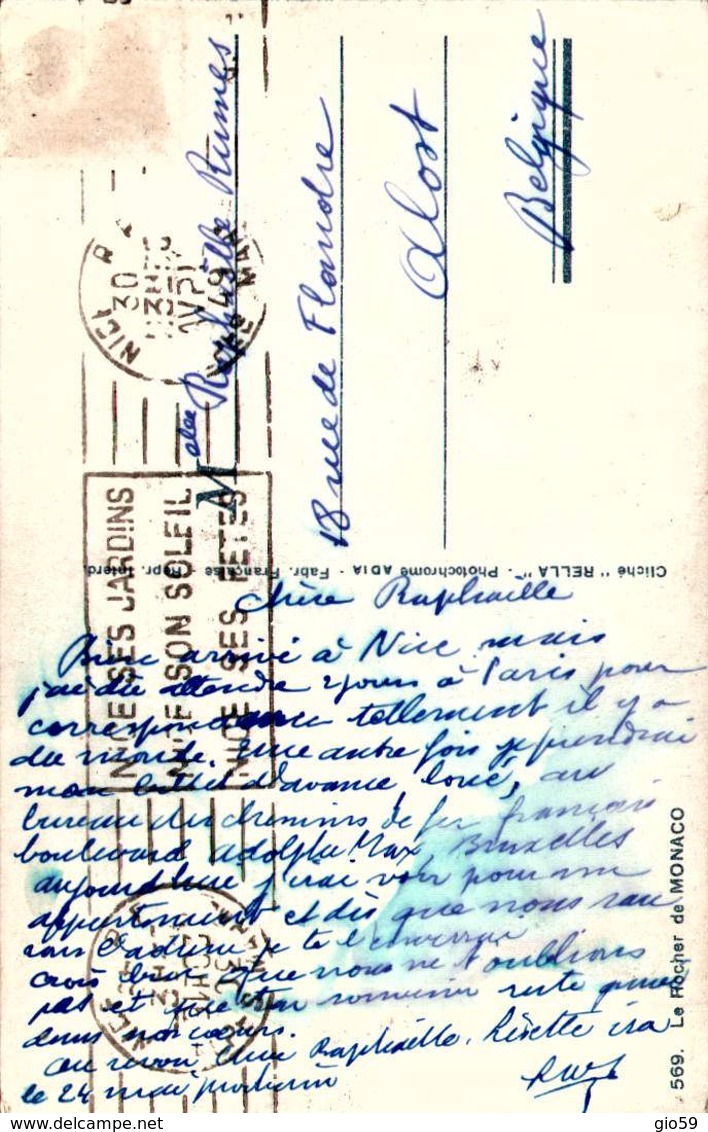 Melle Raphaëlle Rumes
18 rue de Flandre
Alost
Belgique
NICE
30
49
NICE SES JARDINS
NICE SON SOLEIL
NICE SES FETES
Cliché "RELLA" - Photochrome ADIA - Fabr. Française - Repr. Interd.
Chère Raphaelle
Bien arrivé à Nice mais
j'ai dû attendre 2 jours à Paris pour
correspondance tellement il y a
du monde. Une autre fois je prendrai
mon billet d'avance, loué, au
bureau des chemins de fer français
boulevard Adolphe Max Bruxelles
aujourd'hui j'irai voir pour un
appartement et dès que nous
l'adresse je te l'enverrai
crois bien que nous ne t'oublions
pas et que ton souvenir reste
dans nos cœurs.
au revoir chère Raphaëlle. ira
le 24 mai prochain
569. Le Rocher de MONACO
gio59